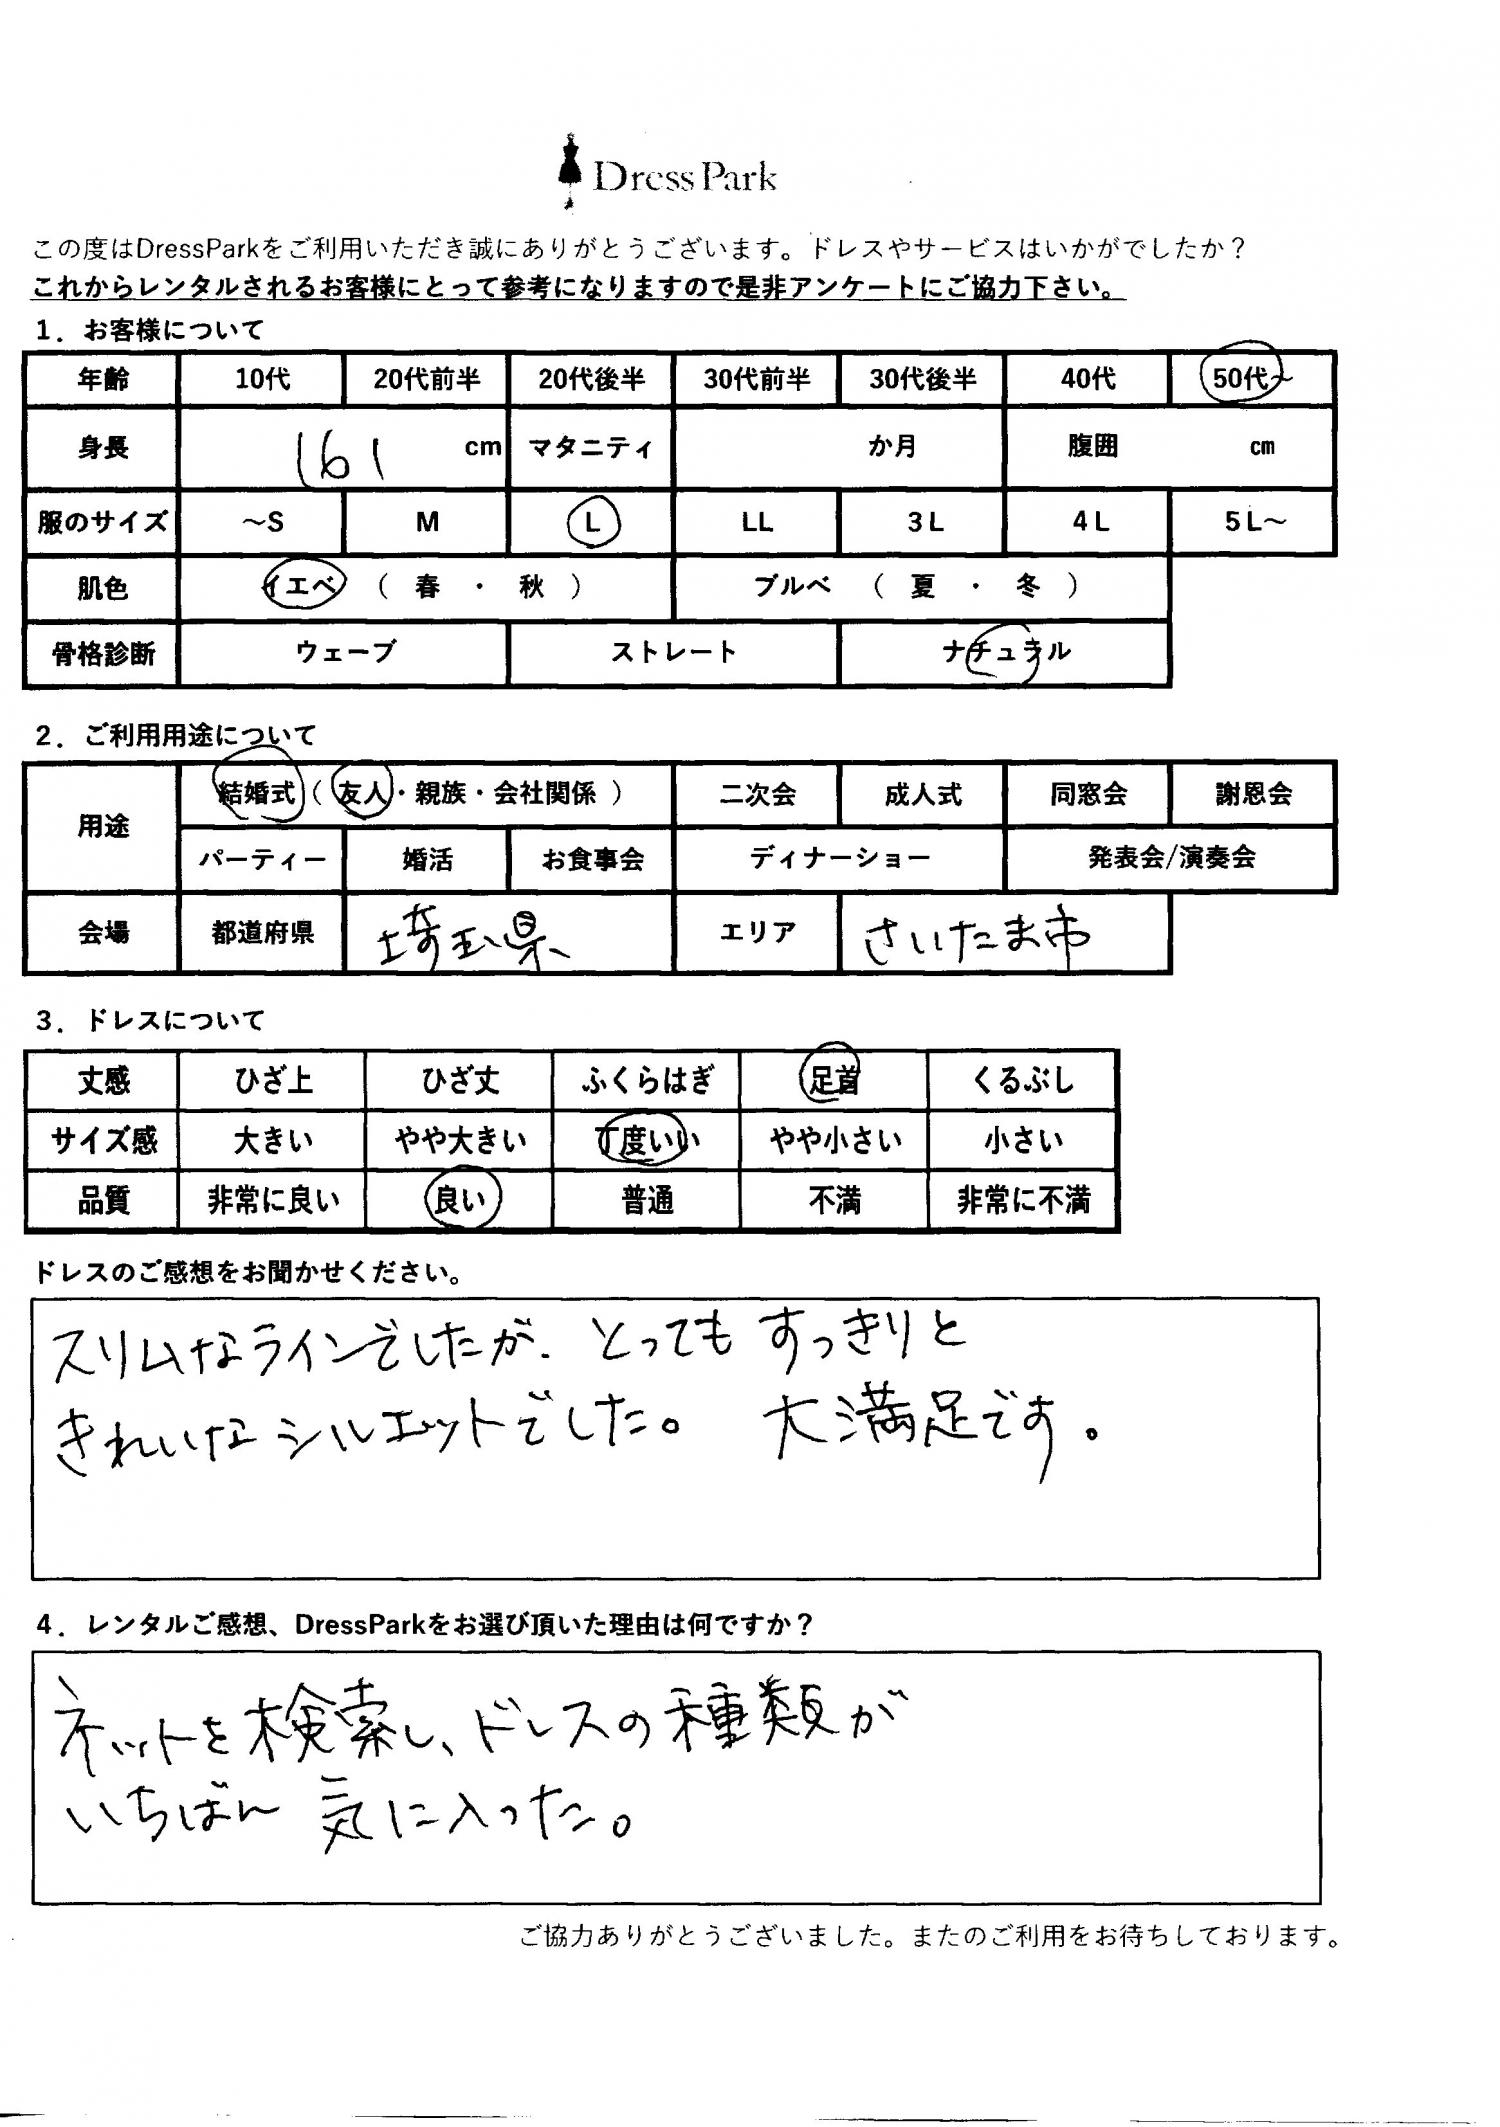 Dress Park
この度はDressParkをご利用いただき誠にありがとうございます。ドレスやサービスはいかがでしたか？
これからレンタルされるお客様にとって参考になりますので是非アンケートにご協力下さい。
1．お客様について
年齢 10代 20代前半 20代後半 30代前半 30代後半 40代 50代～
身長 161 cm マタニティ か月 腹囲 cm
服のサイズ ～S M L LL 3L 4L 5L～
肌色 イエベ （ 春 ・ 秋 ） ブルベ （ 夏 ・ 冬 ）
骨格診断 ウェーブ ストレート ナチュラル
2．ご利用用途について
用途 結婚式（ 友人・親族・会社関係 ） 二次会 成人式 同窓会 謝恩会
パーティー 婚活 お食事会 ディナーショー 発表会/演奏会
会場 都道府県 埼玉県 エリア さいたま市
3．ドレスについて
丈感 ひざ上 ひざ丈 ふくらはぎ 足首 くるぶし
サイズ感 大きい やや大きい 丁度いい やや小さい 小さい
品質 非常に良い 良い 普通 不満 非常に不満
ドレスのご感想をお聞かせください。
スリムなラインでしたが、とってもすっきりと
きれいなシルエットでした。 大満足です。
4．レンタルご感想、DressParkをお選び頂いた理由は何ですか？
ネットを検索し、ドレスの種類が
いちばん気に入った。
ご協力ありがとうございました。またのご利用をお待ちしております。